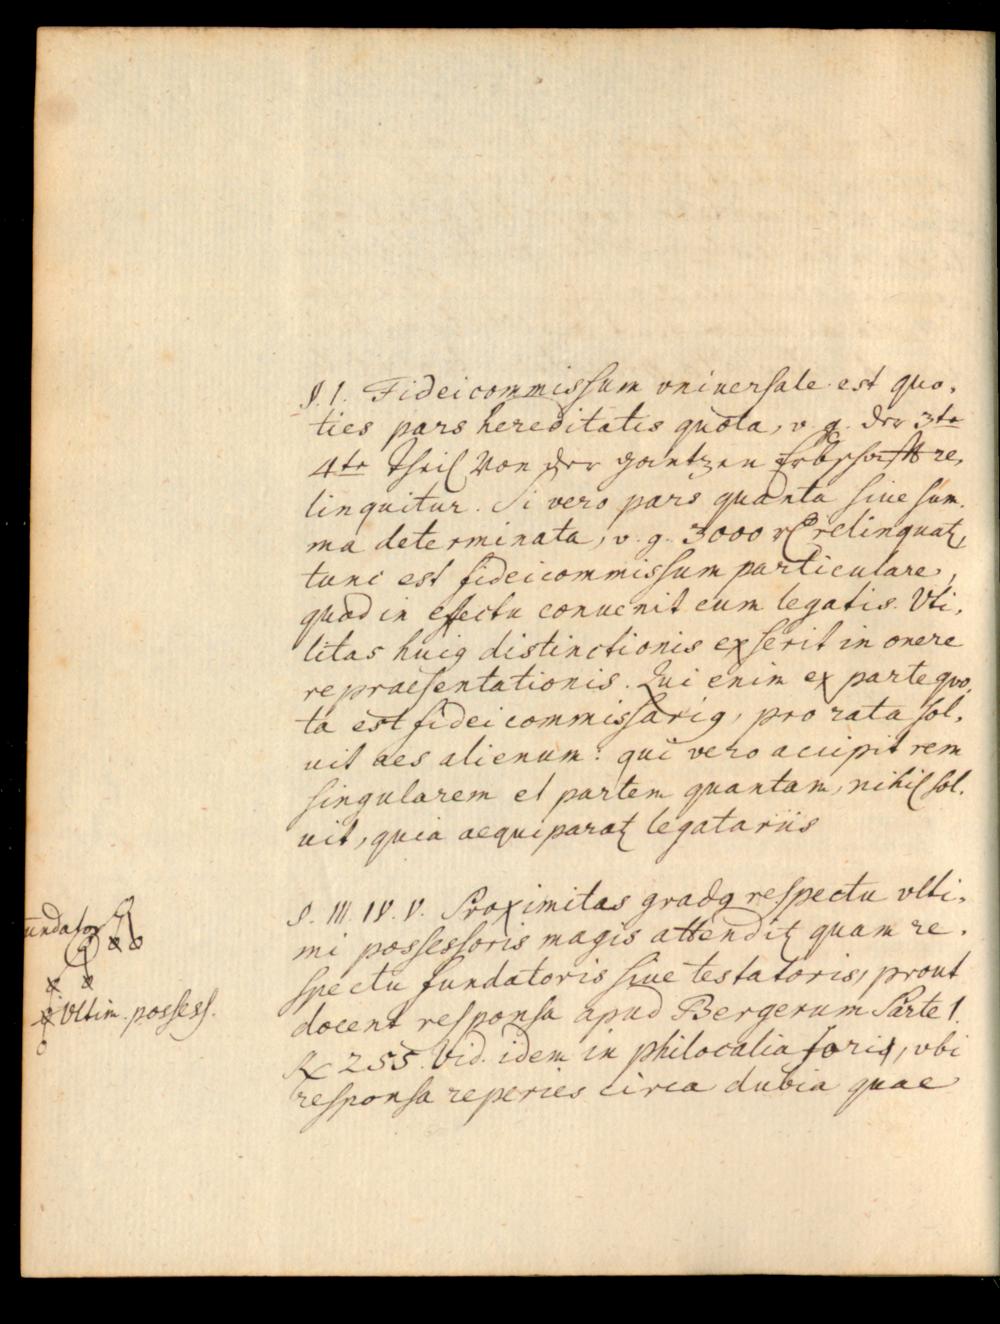 §. I. Fideicommissum vniuersale est quo-
ties pars hereditatis quota, v. g. der 3te
4te Theil von der gantzen Erbschafft re-
linquitur. Si vero pars quanta siue sum-
ma determinata, v. g. 3000 rl relinquatꝛ,
tunc est fideicommissum particulare,
quod in effectu conuenit cum legatis. Vti-
litas huiꝰ distinctionis exserit in onere
repraesentationis. Qui enim ex parte quo-
ta est fideicommissariꝰ, pro rata sol-
uit aes alienum: qui vero accipit rem
singularem et partem quantam, nihil sol-
uit, quia aequiparatꝛ legatariis
§. III. IV. V. Proximitas gradꝰ respectu vlti-
mi possessoris magis attenditꝛ quam re-
spectu fundatoris siue testatoris, prout
docent responsa apud Bergerum Parte 1.
255. Vid. idem in philocalia fori, vbi
responsa reperies circa dubia quae
undator
Vltim. possess.